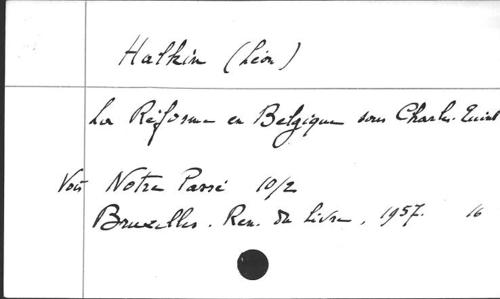 Halkin (Léon)
La Réforme en Belgique sous Charles-Quint
Voir Notre Passé 10/2
Bruxelles. Ren. du Livre, 1957. 16